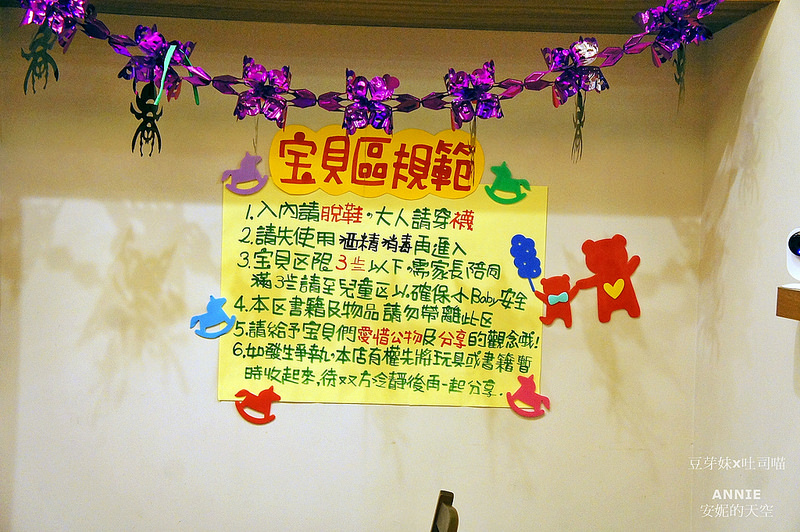 宝貝區規範
1.入內請脫鞋。大人請穿襪
2.請先使用酒精消毒再進入
3.宝貝区限3岁以下,需家長陪同
滿3岁請至兒童区以確保小Baby安全
4.本区書籍及物品請勿帶離此区
5.請給予宝貝們愛惜公物及分享的觀念哦!
6.如發生爭執,本店有權先將玩具或書籍暫
時收起來,待双方冷靜後再一起分享.
豆芽妹x吐司喵
ANNIE
安妮的天空